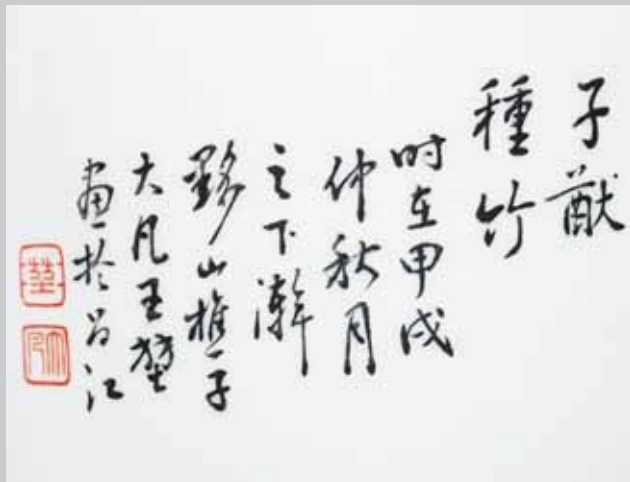 子猷
種竹
时在甲戌
仲秋月
之下澣
黟山樵子
大凡王堃
畫於昌江
堃